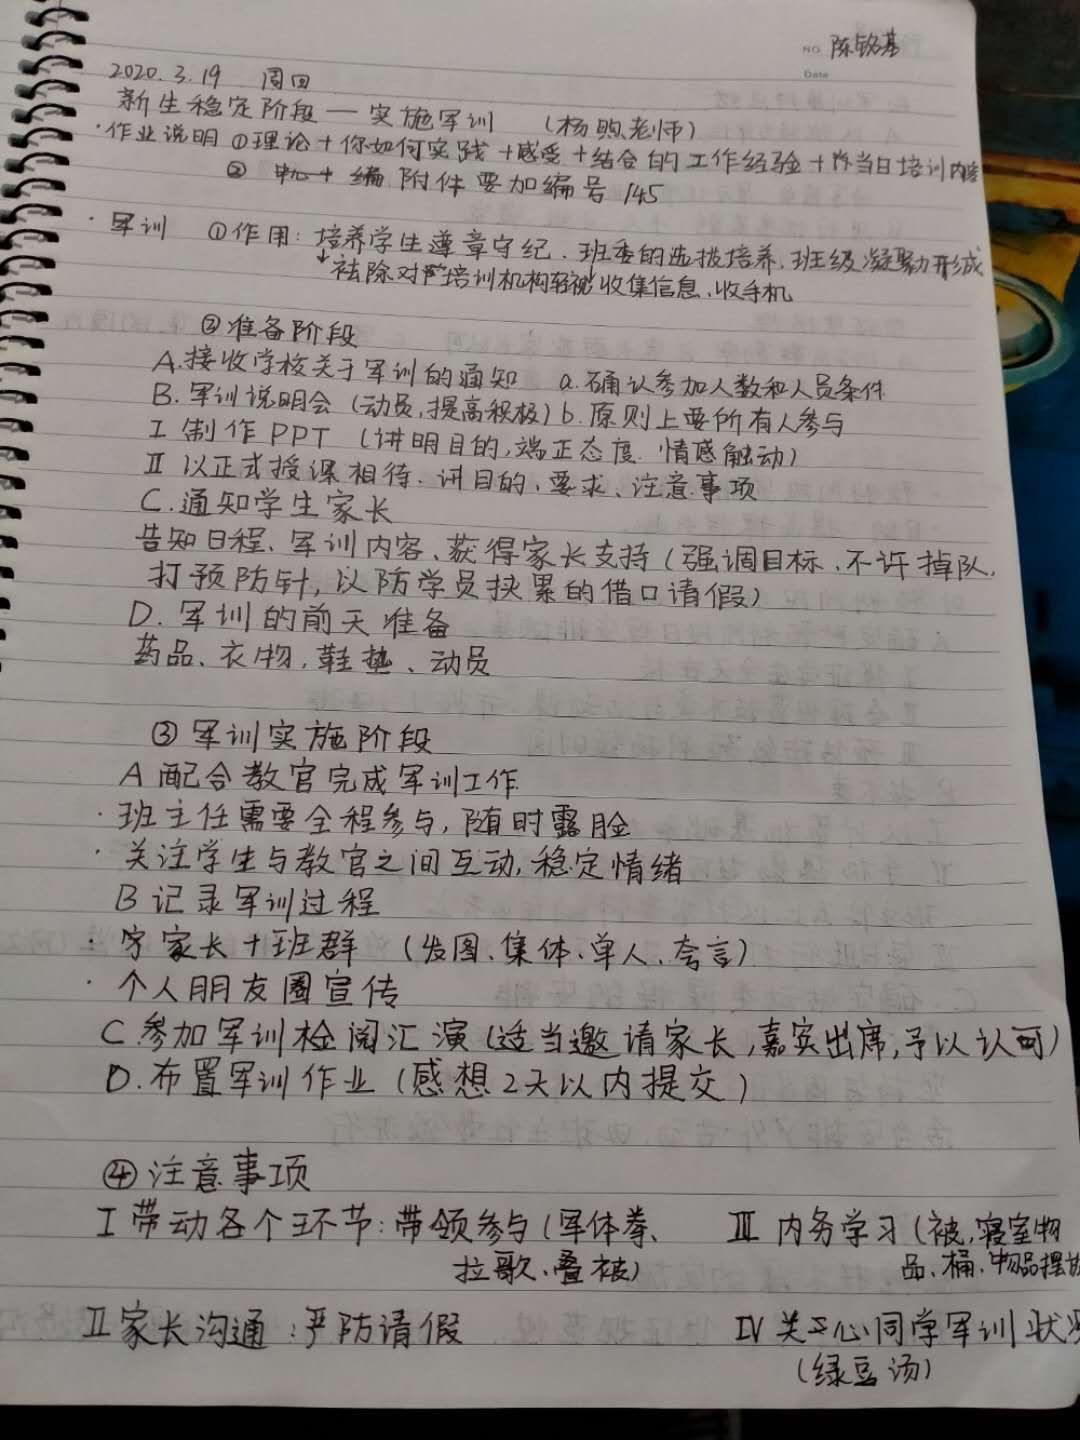 NO. 陈铭基
Date
2020.3.19 周四
新生稳定阶段—实施军训 (杨煦老师)
·作业说明 ①理论+你如何实践+感受+结合的工作经验+当日培训内容
② 附件要加编号 145
·军训 ①作用:培养学生遵章守纪、班委的选拔培养,班级凝聚力形成
↓祛除对培训机构轻视 ↓收集信息、收手机
②准备阶段
A.接收学校关于军训的通知 a.确认参加人数和人员条件
B.军训说明会(动员,提高积极) b.原则上要所有人参与
I 制作PPT (讲明目的,端正态度.情感触动)
II 以正式授课相待.讲目的、要求、注意事项
C.通知学生家长
告知日程、军训内容、获得家长支持(强调目标、不许掉队,
打预防针,以防学员挟累的借口请假)
D.军训的前天准备
药品、衣物,鞋垫、动员
③军训实施阶段
A 配合教官完成军训工作
·班主任需要全程参与,随时露脸
·关注学生与教官之间互动,稳定情绪
B 记录军训过程
·家长+班群 (发图、集体、单人、夸言)
·个人朋友圈宣传
C.参加军训检阅汇演(适当邀请家长,嘉宾出席,予以认可)
D.布置军训作业(感想2天以内提交)
④注意事项
I 带动各个环节:带领参与(军体拳、
拉歌、叠被)
III 内务学习(被,寝室物
品、桶、物品摆放
II 家长沟通:严防请假
IV 关心同学军训状况
(绿豆汤)